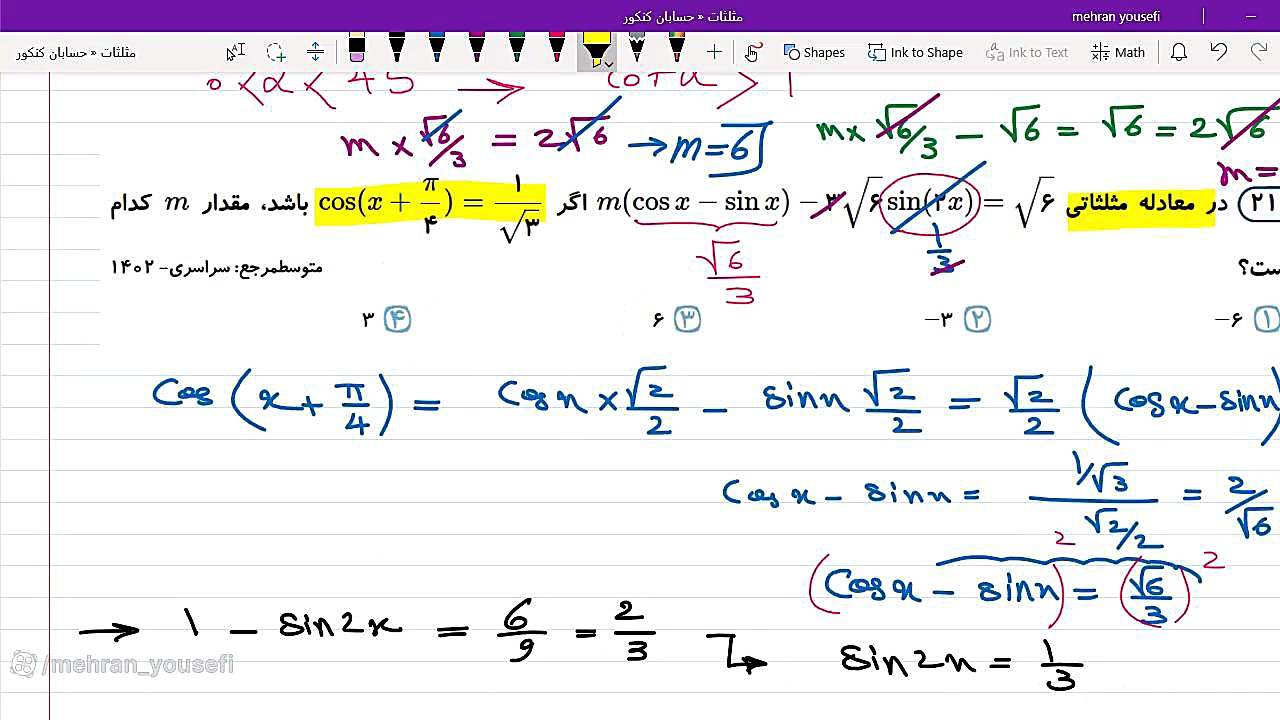 مثلثات « حسابان کنکور
mehran yousefi
مثلثات « حسابان کنکور
Shapes
Ink to Shape
Ink to Text
Math
0 < α < 45 → cotα > 1
m × √6/3 = 2√6 → m = 6
m × √6/3 − √6 = √6 = 2√6
m =
۲۱ در معادله مثلثاتی m(cos x − sin x) − ۳√۶ sin(۲x) = √۶ اگر cos(x + π/۴) = ۱/√۳ باشد، مقدار m کدام
√6/3
1/3
ست؟
متوسط مرجع: سراسری- ۱۴۰۲
۱ −۶
۲ −۳
۳ ۶
۴ ۳
Cos (x + π/4) = Cosx × √2/2 − sinx √2/2 = √2/2 (Cosx − sinx
Cosx − sinx = 1/√3 / √2/2 = 2/√6
(Cosx − sinx)² = (√6/3)²
→ 1 − sin2x = 6/9 = 2/3 → sin2x = 1/3
/mehran_yousefi